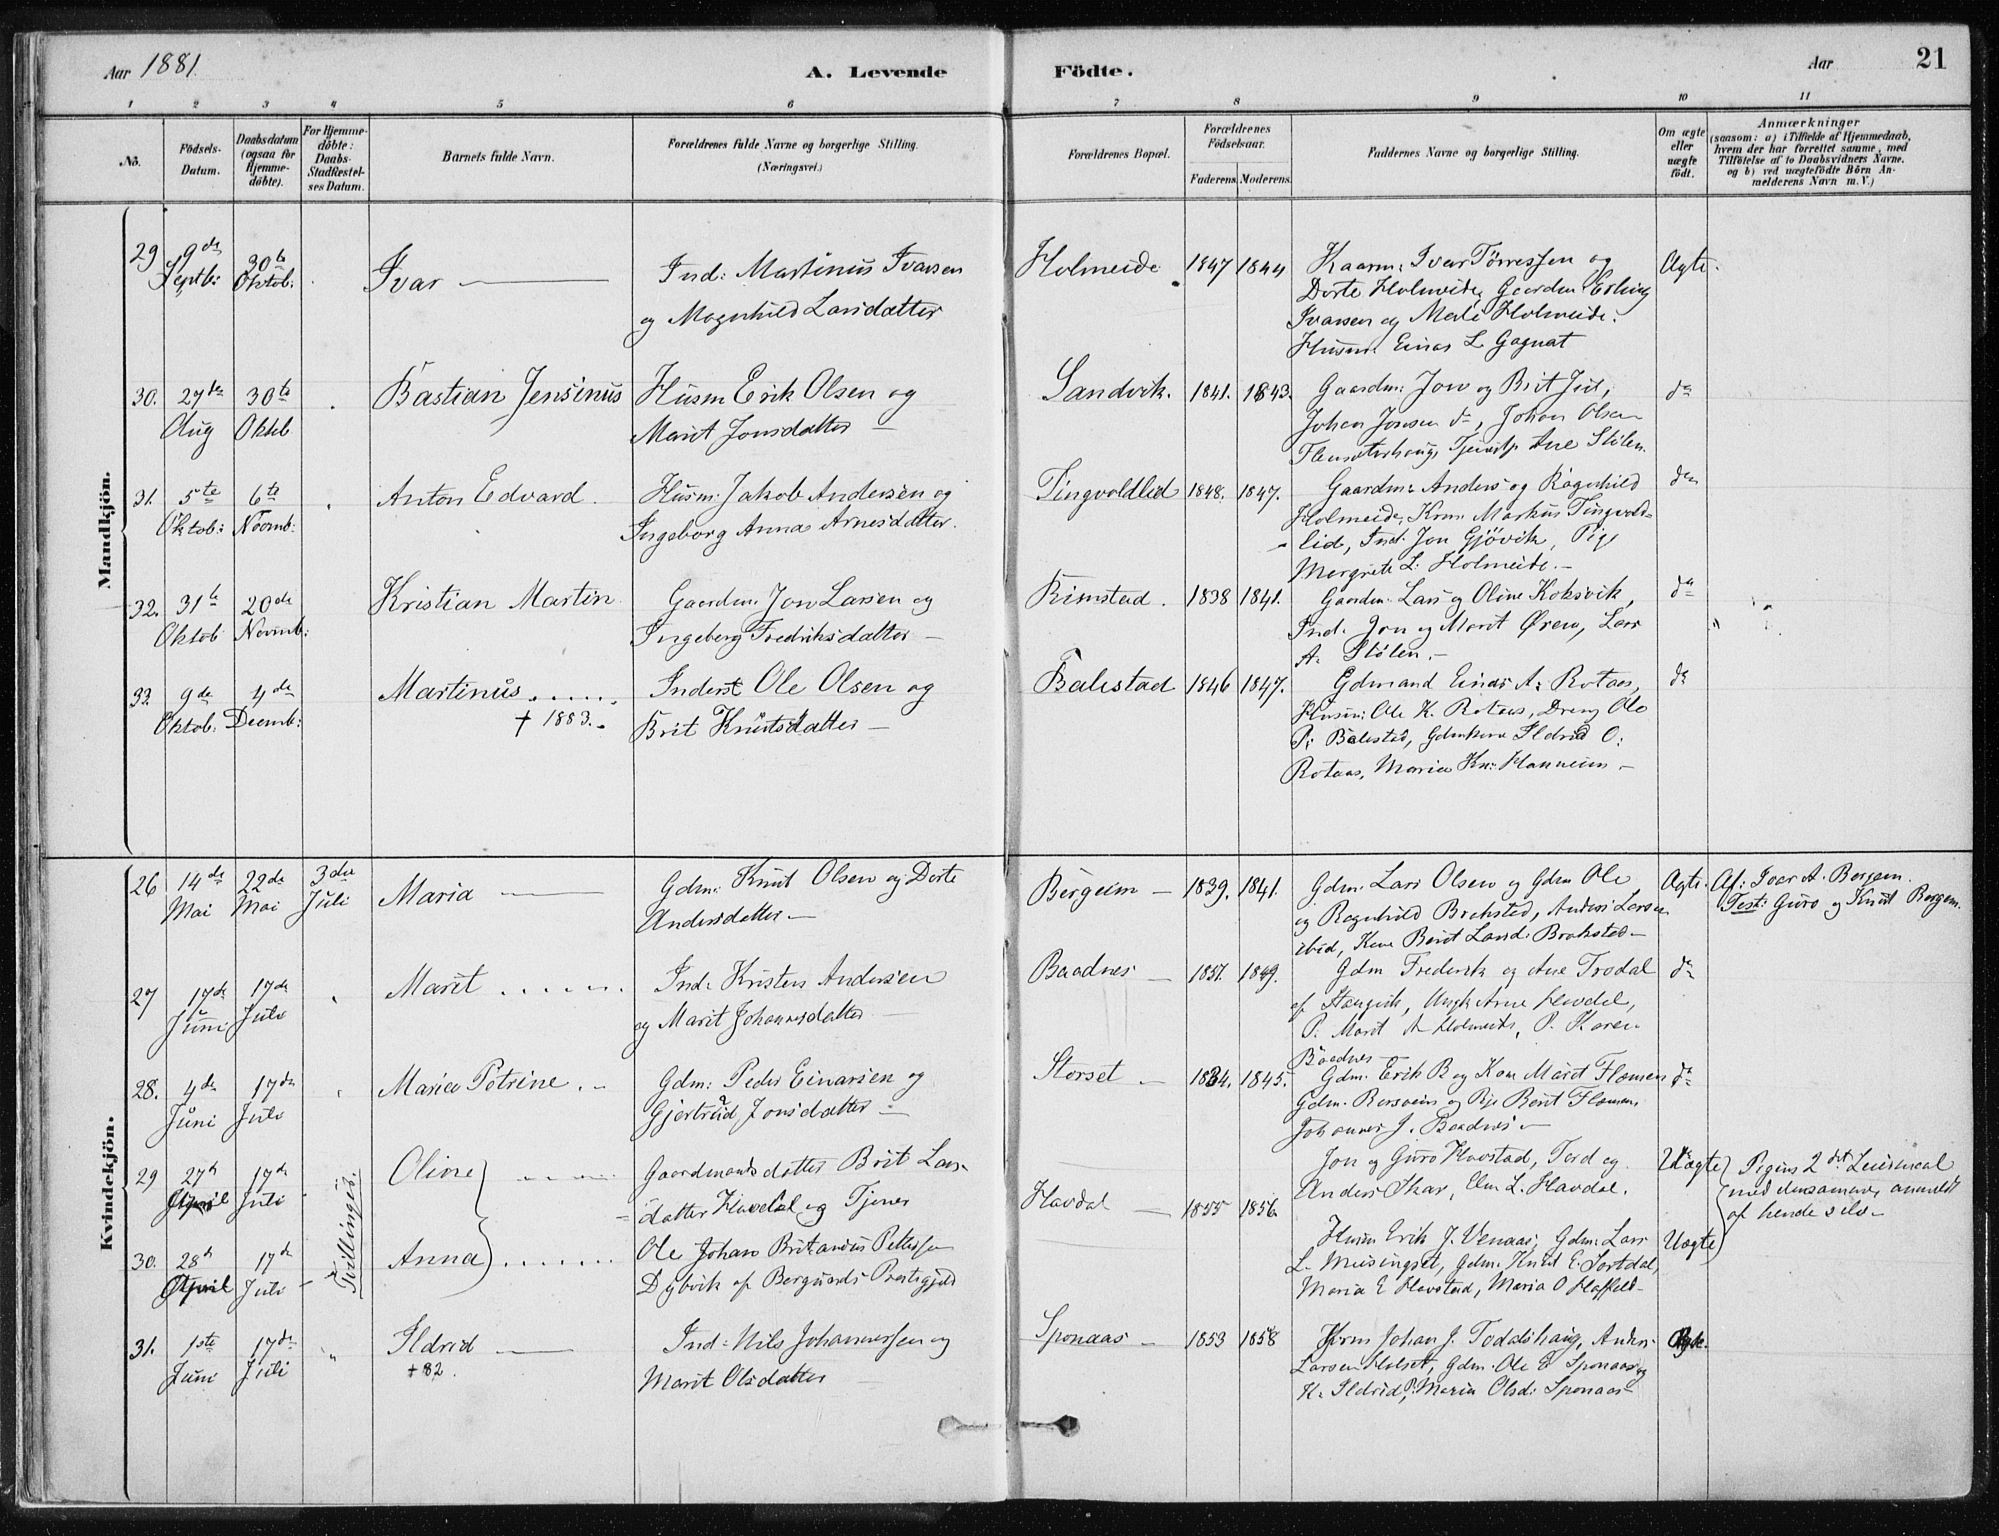 Aar 1881.
A. Levende Födte.
Aar
21
1 2 3 4 5 6 7 8 9 10 11
No.
Födsels-
Datum.
Daabsdatum
(ogsaa for
Hjemme-
döbte).
For Hjemme-
döbte:
Daabs-
Stadfæstel-
ses Datum.
Barnets fulde Navn.
Forældrenes fulde Navne og borgerlige Stilling.
(Næringsvei.)
Forældrenes Bopæl.
Forældrenes
Födselsaar.
Faderens. Moderens.
Faddernes Navne og borgerlige Stilling.
Om ægte
eller
uægte
födt.
Anmærkninger
(saasom: a) i Tilfælde af Hjemmedaab,
hvem der har forrettet samme, med
Tilföielse af to Daabsvidners Navne.
og b) ved uægtefödte Börn An-
melderens Navn m. V.)
Mandkjön.
29 9de Septb: 30te Oktob: Ivar
Ind: Martinus Ivarsen
og Magnhild Larsdatter
Holmeide 1847 1844
Kaarm: Ivar Törressen og
Dorte Holmeide, Gaardm: Erling
Ivarsen og Merle Holmeide.
Husm: Einar L. Gagnat
Ægte.
30. 27de Aug 30te Oktb Bastian Jensinus
Husm Erik Olsen og
Marit Jonsdatter
Sandvik. 1841. 1843.
Gaardm: Jon og Brit
Johan Jonsen do, Johan Olsen
Ane Stölen.
do
31. 5te Oktob: 6te Novmb: Anton Edvard.
Husm: Jakob Andersen og
Ingeborg Anna Arnesdatter.
Tingvoldlid 1848. 1847.
Gaardm: Anders og Ragnhild
Holmeide, Markus Tingvold-
lid, Ind: Jon Gjövik, Pige
Margrete L. Holmeide.
do
32. 31te Oktob 20de Novmb: Kristian Martin
Gaardm: Jon Larsen og
Ingeborg Fredriksdatter
Rimstad. 1838 1841.
Gaardm: Lars og Oline Koksvik,
Ind. Jon og Marit Øren, Lars
A. Stölen.
do
33. 9de Oktob: 4de Decmb: Martinus
† 1883.
Inderst Ole Olsen og
Brit Knutsdatter
Balestad 1846 1847.
Gdmand Einar A. Rotaas,
Husm: Ole K. Rotaas, Dreng Ole
P: Balestad, Gdmkone Ildrid O:
Rotaas, Maria Kn: Hanneim
do
Kvindekjön.
26 14de Mai 22de Mai 3die Juli Maria
Gdm: Knut Olsen og Dorte
Andersdatter
Bergeim 1839. 1841.
Gdm: Lars Olsen og Gdm Ole
og Ragnhild Brakstad, Anders Larsen
ibid, Kone Berit Larsd: Brakstad
Ægte. Af: Ivar A. Bergem.
Test: Guro og Knut Bergem.
27 17de Juni 17de Juli Marit
Ind: Kristen Andersen
og Marit Johannesdatter
Baadnes 1851. 1849.
Gdm Frederik og Ane Trodal
af Stangvik, Ungk Arne Havdal,
P. Marit A Holmeide, P. Karen
Baadnes
do
28. 4de Juni 17de Juli Maria Petrine
Gdm: Peder Einarsen og
Gjertrud Jonsdatter
Storset 1834. 1845.
Gdm. Erik B og Kone Marit Flemsen
Gdm. og Pige Berit Flemsen
Johannes J. Baadnes
do
29 27de April 17de Juli Oline
Tvillinger.
Gaardmandsdatter Brit Lars-
datter Havdal og Tjener
Havdal 1855 1856.
Jon og Guro Havstad, Tord og
Anders Skar, Elen L. Havdal.
Uægte
Pigens 2det Leiermaal
med densamme, anmeldt
af hende selv
30. 28de April 17de Juli Anna
Ole Johan Britanus Pettersen
Dybvik af Bergsøs Præstegjeld
Husm Erik J. Venaas, Gdm: Lars
L. Meisingset, Gdm. Knut E. Torsdal,
Maria E Havstad, Maria O Hafsfeld
Uægte
31. 1ste Juni 17de Juli Ildrid
+ 82.
Ind: Nils Johannessen og
Marit Olsdatter
Sponaas 1853 1858
Johan J. Todalshaug, Anders
Larsen Holset, Gdm. Ole E Sponaas og
K. Ildrid, P. Maria Olsd: Sponaas
Ægte.